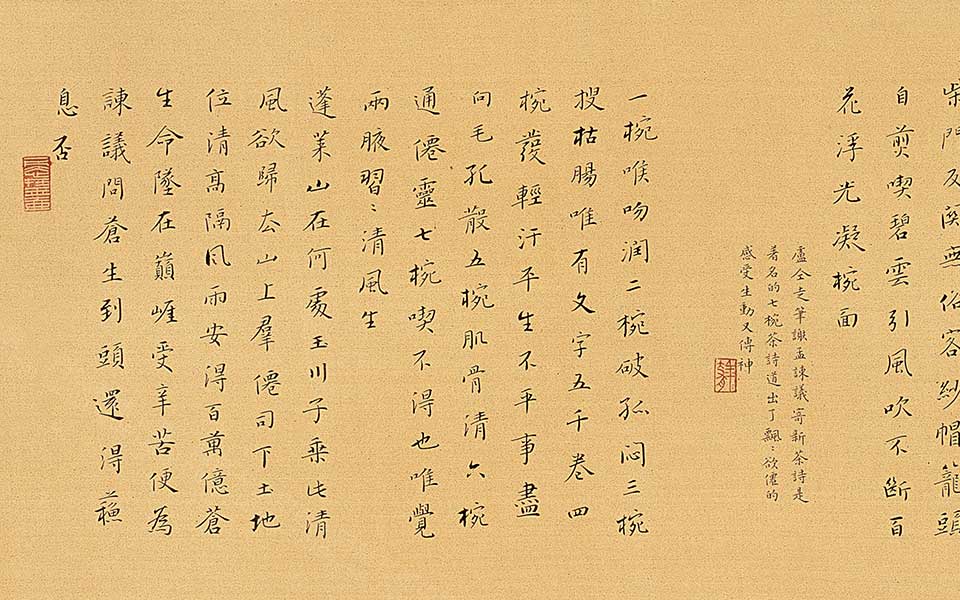 柴門反関無俗客紗帽籠頭
自剪喫碧雲引風吹不斷百
花浮光凝椀面
盧仝走筆謝孟諫議寄新茶詩是
著名的七椀茶詩道出了飄〻欲僊的
感受生動又傳神
一椀喉吻潤二椀破孤悶三椀
搜枯腸唯有文字五千卷四
椀發輕汗平生不平事盡
向毛孔散五椀肌骨清六椀
通僊靈七椀喫不得也唯覺
兩腋習〻清風生
蓬萊山在何處玉川子乘此清
風欲歸去山上羣僊司下土地
位清高隔風雨安得百萬億蒼
生命墜在巔崖受辛苦便為
諫議問蒼生到頭還得蘇
息否